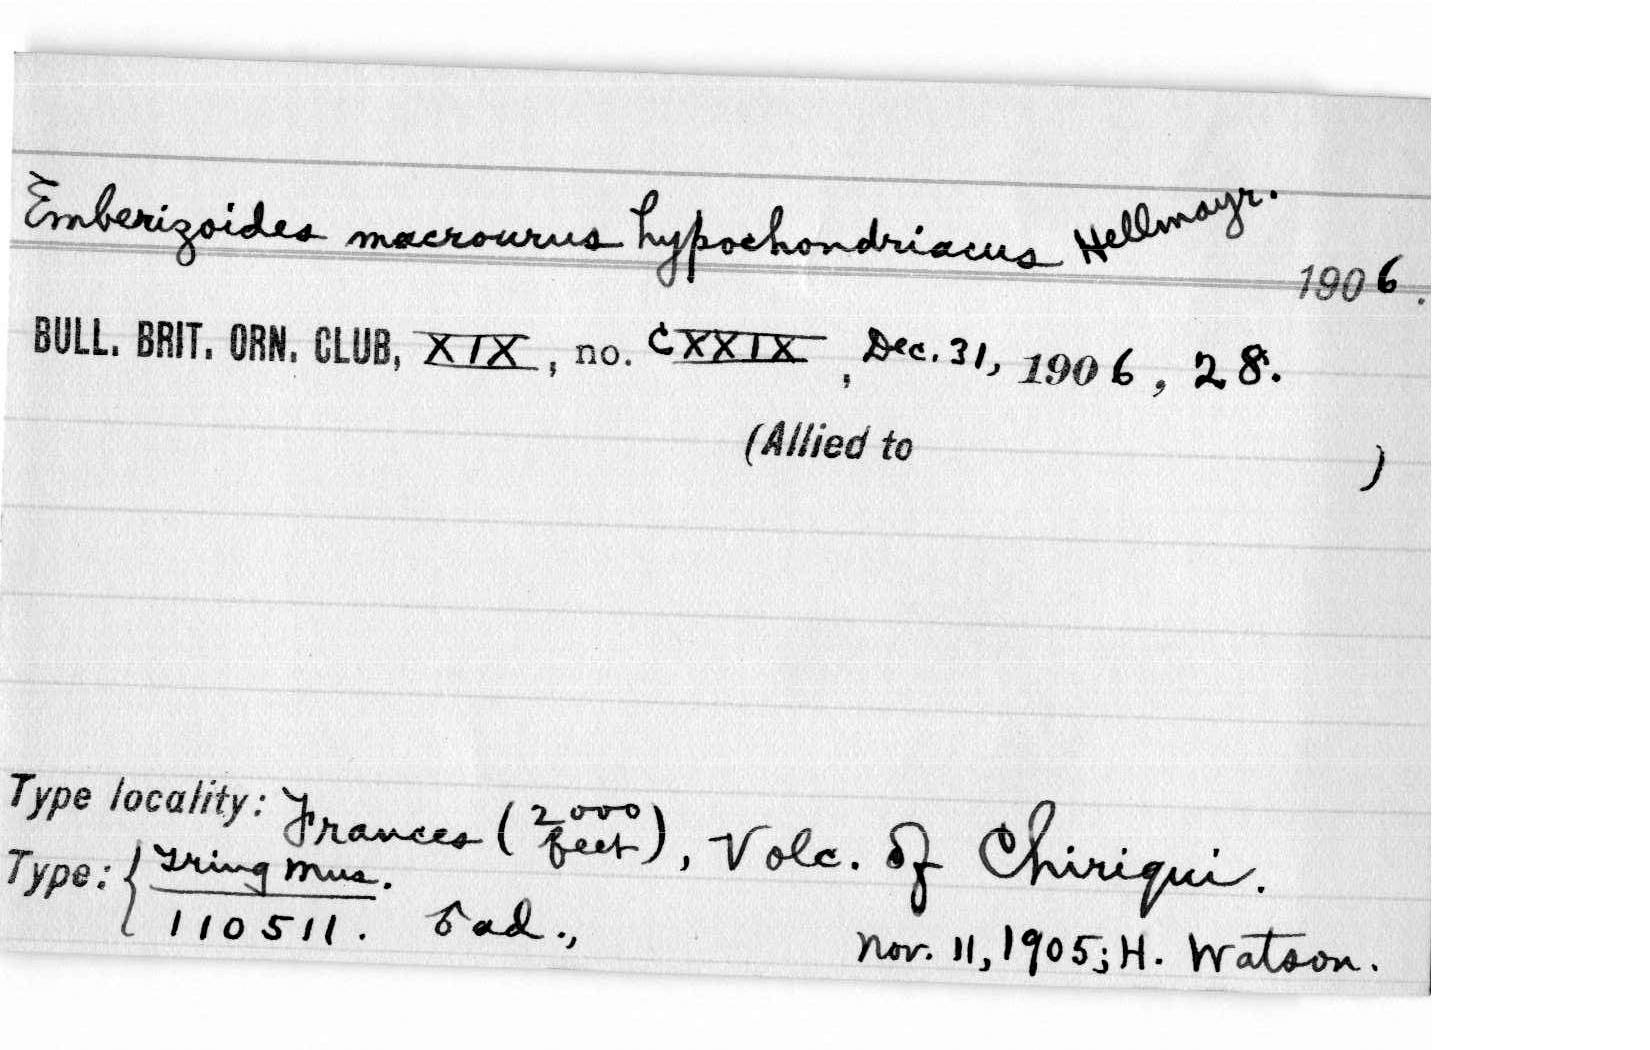 Emberizoides macrourus hypochondriacus Hellmayr.
1906.
BULL. BRIT. ORN. CLUB, XIX, no. CXXIX, Dec. 31, 1906, 28.
(Allied to )
Type locality: Frances (2000 feet), Volc. of Chiriqui.
Type: { Tring Mus.
110511. ♂ ad., Nov. 11, 1905; H. Watson.